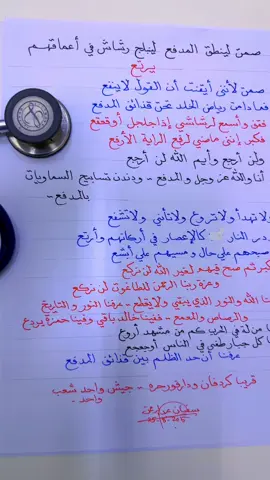 صمتّ لينطق المدفع لينلج رشاش في أعماقهم
يرتع
صمت لأنني أيقنت أن القول لا ينفع
فما دامت رياض الخلد تحت قذائف المدفع
فقن وأسمع لرشاشي إذا جلجل أو قعقع
فكبر إنني ماضي لرفع الراية الأرفع
ولن أرجع وأيم الله لن أرجع
أنا والله عز وجل والمدفع - ودندن تسابيح السماويات
بالمدفع -
ولا تهدأ ولا تروغ ولا تأبني ولا تشفع
النار كالإعصار في أركانهم وأرتع
على حال ومسيهم على أبشع
صح فيهم لغير الله لن نركع
وعزة ربنا الرحمن للطاغوت لن نركع
والله والنور الذي يبقى ولا يقطع - عرفنا النور والتاريخ
والرصاص والمدمع - ففينا خالد باقي وفينا حمزة يردع
من مشهد أروع
كل جبار طغى في الناس أوجعجع
عرفنا أن حد الظلم بين قذائف المدفع
قريبا كردفان ودارفور حرة - جيش واحد شعب
واحد -